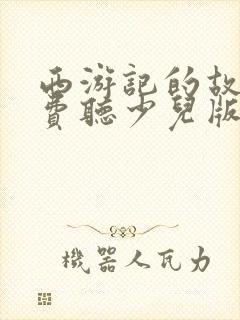 西游記的故
費聽少兒版
機器人瓦力